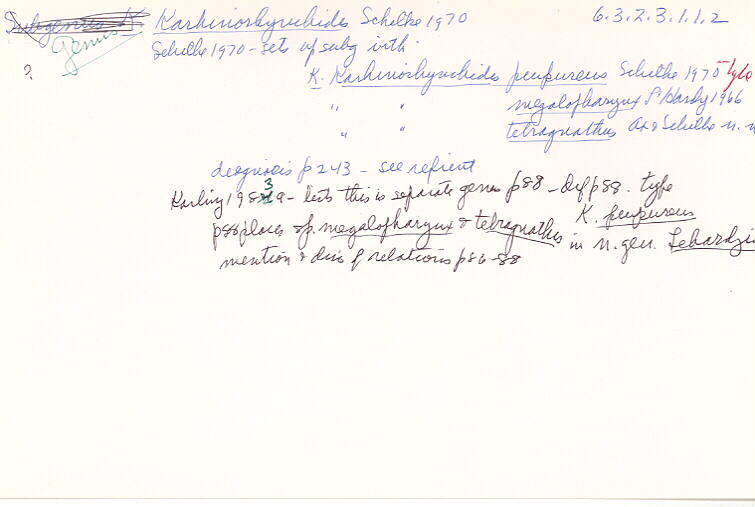 Subgenus K. Karkinorhynchides Schilke 1970 6.3.2.3.1.1.2
Genus
Schilke 1970 - sets up subg with:
? K. Karkinorhynchides purpureus Schilke 1970 Type
" " megalopharynx Ehlers 1966
" " tetragnathus Ax & Schilke n. n
diagnosis p 243 - see reprint
Karling 1983a - lists this is separate genus p88 - Def p88. type K. purpureus
p88 places sp. megalopharynx & tetragnathus in n. gen.
mention & disc of relations p86-88